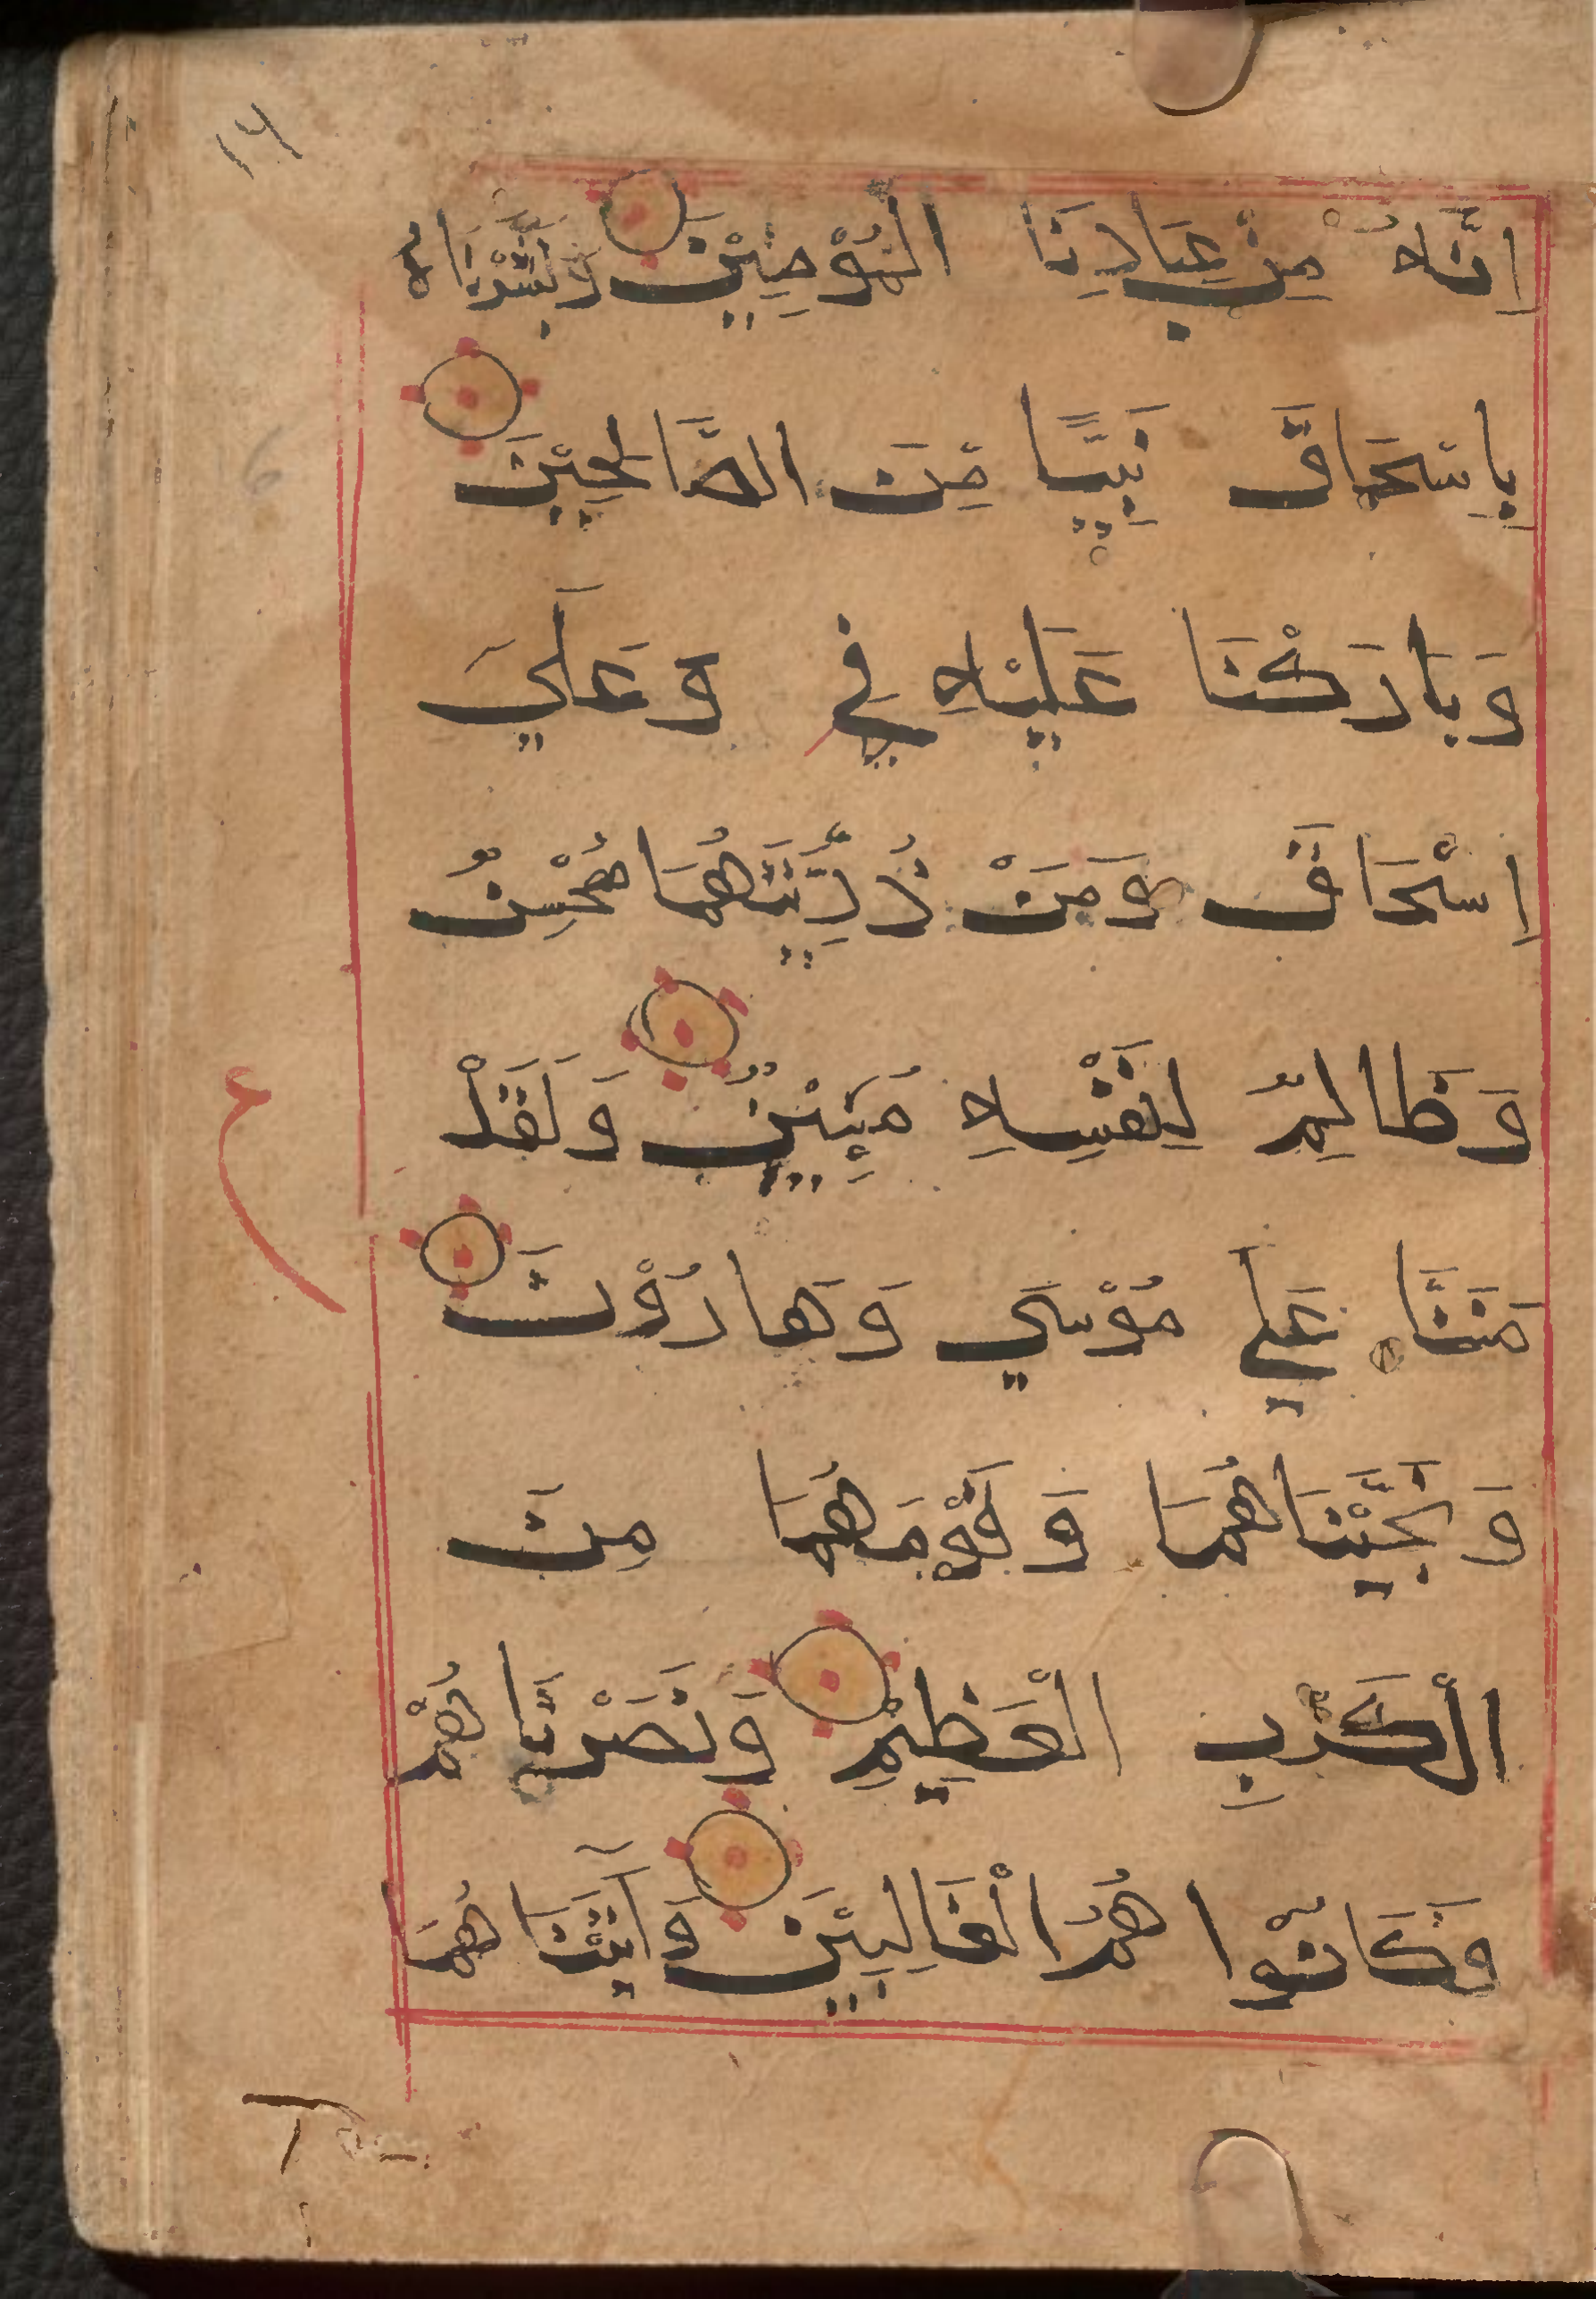 ١٦
اِنَّهُ مِنْ عِبَادِنَا الْمُؤْمِنِيْنَ وَبَشَّرْنَاهُ
بِاِسْحَاقَ نَبِيًّا مِّنَ الصَّالِحِيْنَ
وَبَارَكْنَا عَلَيْهِ فِي وَعَلَيَ
اِسْحَاقَ وَمِنْ ذُرِّيَّتِهُمَا مُحْسِنٌ
وَظَالِمٌ لِنَفْسِهِ مُبِيْنٌ وَلَقَدْ
مَنَنَّا عَلَي مُوْسَي وَهَارُوْنَ
وَنَجَّيْنَاهُمَا وَقَوْمَهُمَا مِنَ
الْكَرْبِ الْعَظِيْمِ وَنَصَرْنَا هُمْ
وَكَانُوا هُمُ الْغَالِبِيْنَ وَآتَيْنَا هُمَا